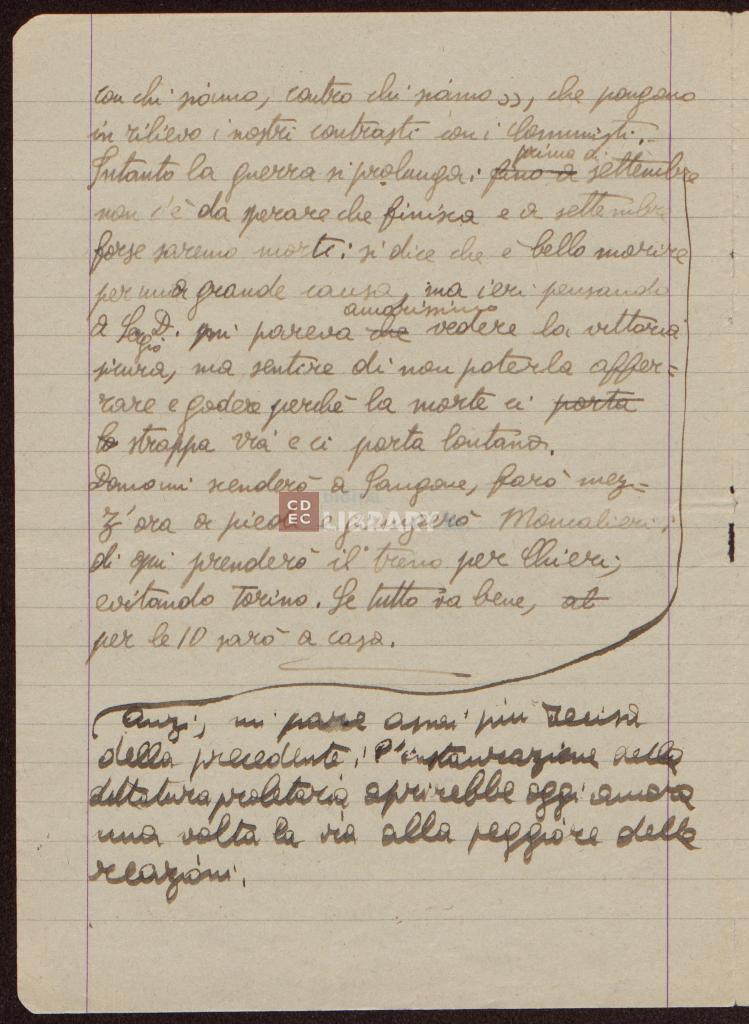 con chi siamo, contro chi siamo», che pongono
in rilievo i nostri contrasti con i Comunisti.
Intanto la guerra si prolunga: fino a prima di settembre
non c'è da sperare che finisca e a settembre
forse saremo morti: si dice che è bello morire
per una grande causa, ma ieri pensando
a Sergio D. mi pareva che amarissimo vedere la vittoria
sicura, ma sentire di non poterla affer=
rare e godere perché la morte ci porta
lo strappa via e ci porta lontano.
Domani scenderò a Sangone, farò mez=
z'ora a piedi e giungerò Moncalieri;
di qui prenderò il treno per Chieri;
evitando Torino. Se tutto va bene, al
per le 10 sarò a casa.
Anzi, mi pare assai più decisa
della precedente; l'instaurazione della
dittatura proletaria aprirebbe oggi ancora
una volta la via alla peggiore delle
reazioni.
CD
EC
DIGITAL
LIBRARY